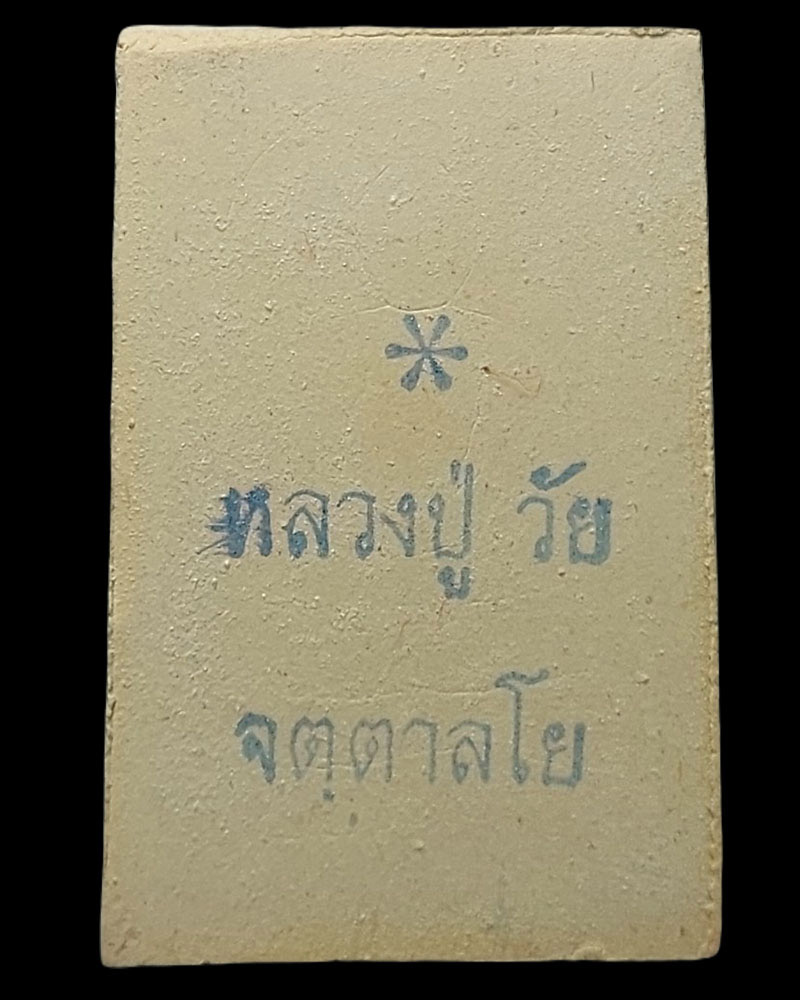 *
หลวงปู่ วัย
จตฺตาลโย